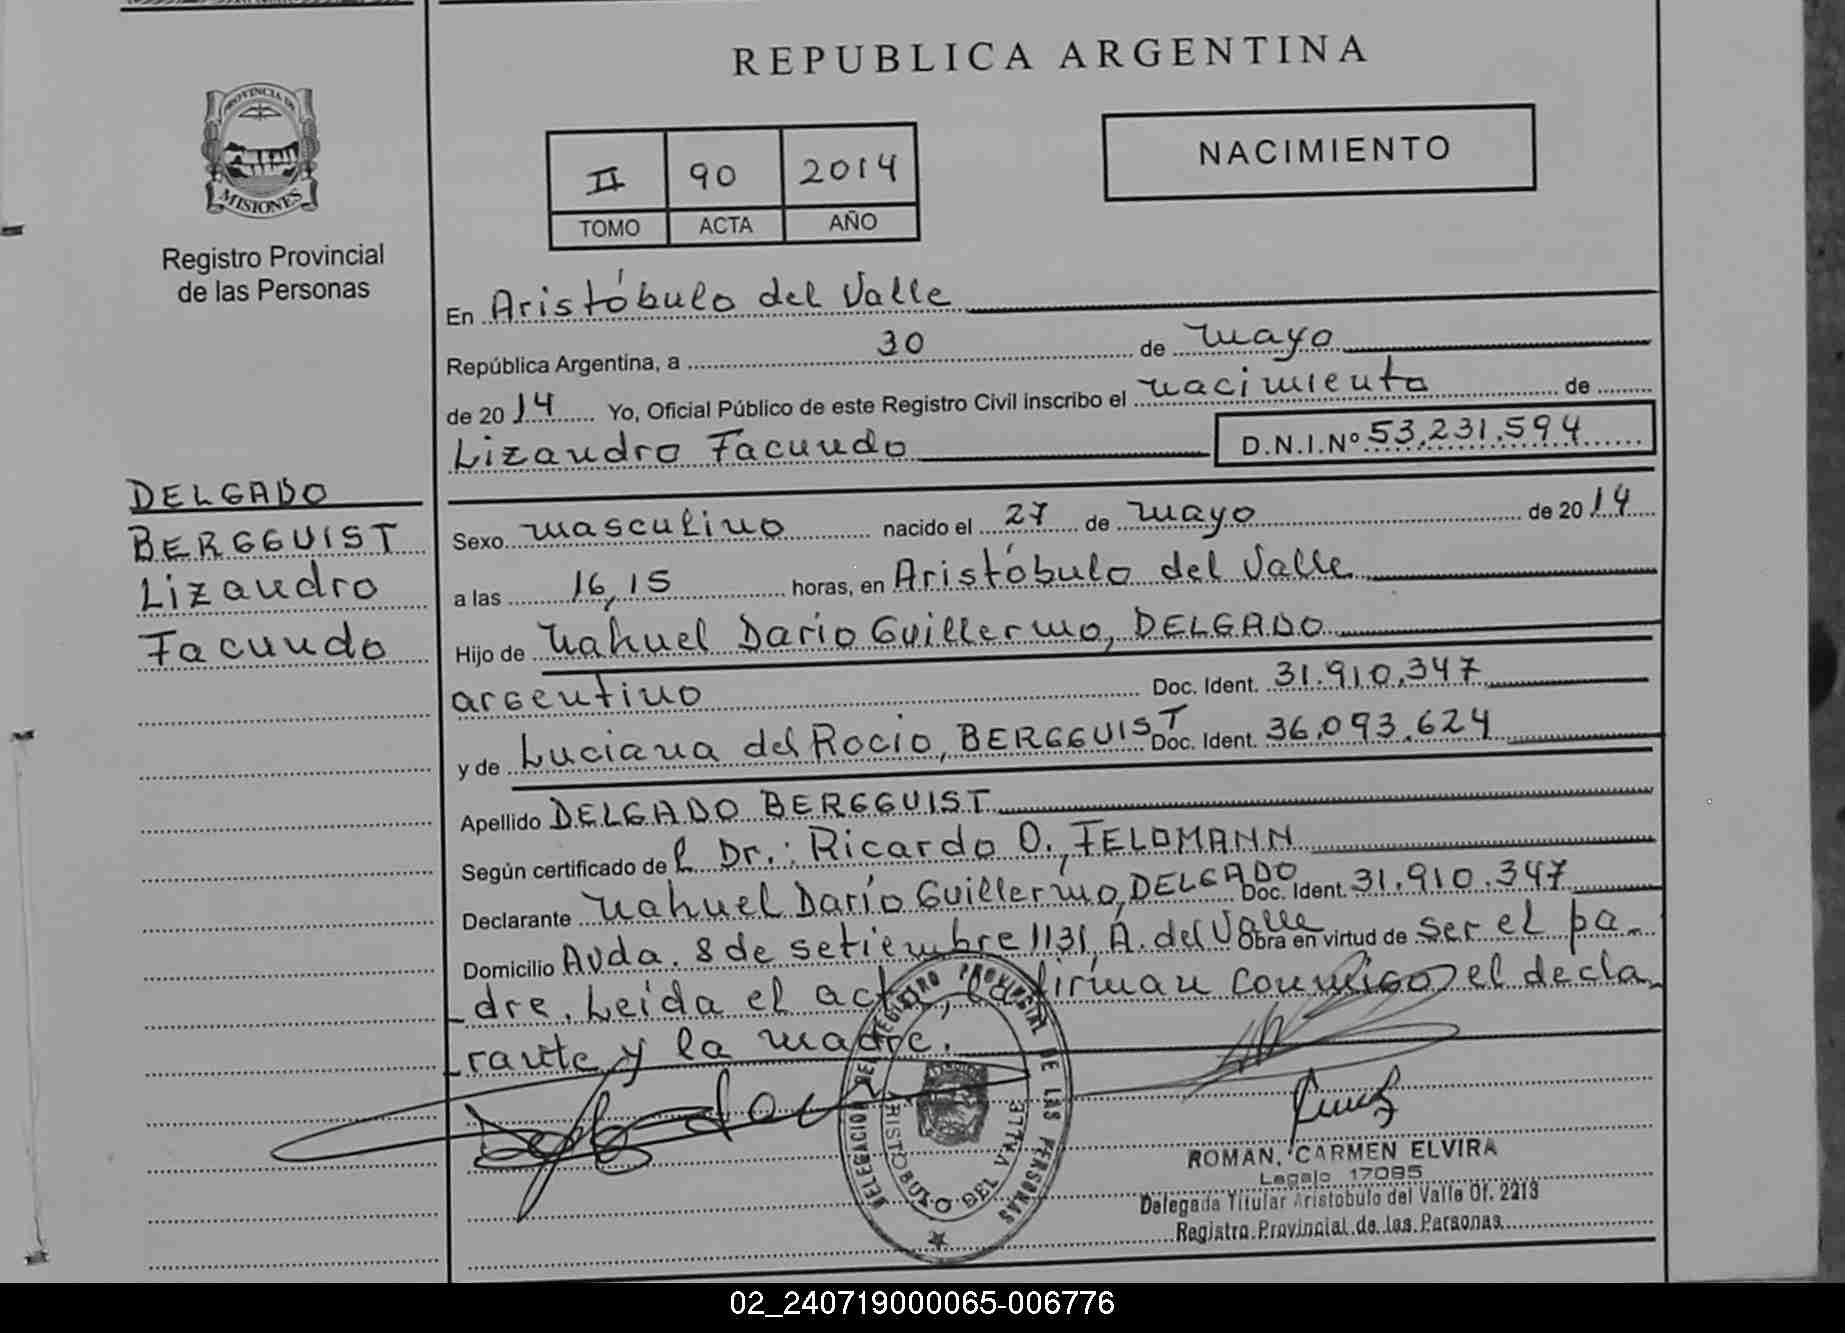 REPUBLICA ARGENTINA
PROVINCIA DE
MISIONES
Registro Provincial
de las Personas
NACIMIENTO
II 90 2014
TOMO ACTA AÑO
En Aristóbulo del Valle
República Argentina, a 30 de mayo
de 2014 Yo, Oficial Público de este Registro Civil inscribo el nacimiento de
Lizandro Facundo D.N.I.Nº 53.231.594
DELGADO
BERGGUIST
Lizandro
Facundo
Sexo masculino nacido el 27 de mayo de 2014
a las 16,15 horas, en Aristóbulo del Valle
Hijo de Nahuel Darío Guillermo, DELGADO
argentino Doc. Ident. 31.910.347
y de Luciana del Rocío, BERGGUIST Doc. Ident. 36.093.624
Apellido DELGADO BERGGUIST
Según certificado del Dr.: Ricardo O., FELDMANN
Declarante Nahuel Darío Guillermo, DELGADO Doc. Ident. 31.910.347
Domicilio Avda. 8 de setiembre 1131, A. del Valle Obra en virtud de ser el pa-
dre. Leída el acta, la firman conmigo el decla
rante y la madre.
DELEGACION DEL REGISTRO PROVINCIAL DE LAS PERSONAS
ARISTOBULO DEL VALLE
ROMAN, CARMEN ELVIRA
Legajo 17085
Delegada Titular Aristobulo del Valle Of. 2213
Registro Provincial de las Personas
02_240719000065-006776